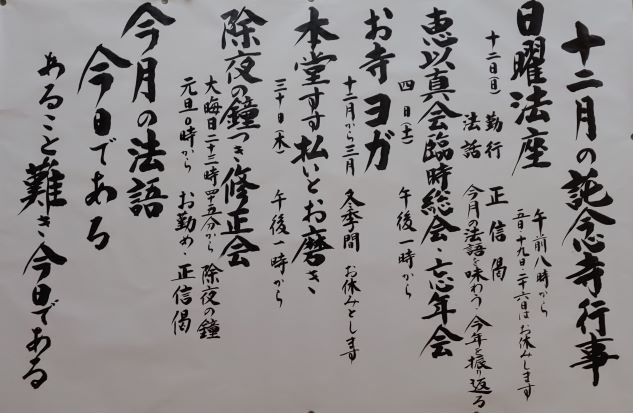 十二月の託念寺行事
日曜法座
午前八時から
五日・十九日・二十六日はお休みします
十二日(日) 勤行 正信偈
法話 今月の法語を味わう 今年を振り返る
恵以真会臨時総会・忘年会
四日(土) 午後一時から
お寺ヨガ
十二月から三月 冬季間 お休みとします
本堂すす払いとお磨き
三十日(木) 午後一時から
除夜の鐘つき・修正会
大晦日二十三時四十五分から 除夜の鐘
元旦0時から お勤め・正信偈
今月の法語
今日である
あること難き今日である